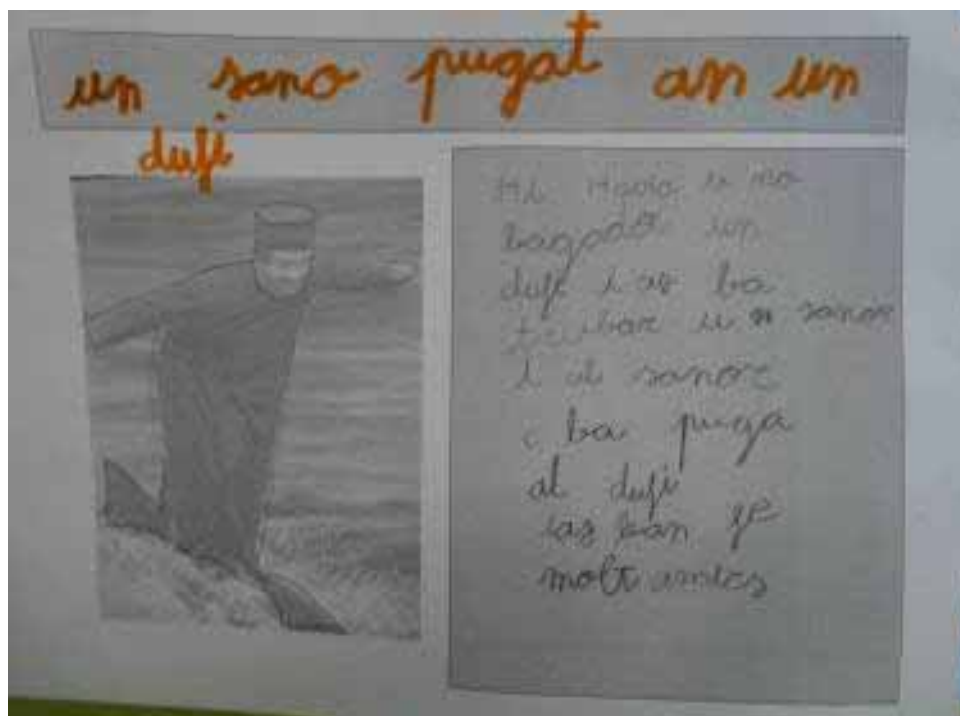 un sano pugat an un
dufi
Hi Havia u
un
dufi i as ba
tru bar u n sanor
i al sanor
i ba puga
al dufi
ias ban fe
molt amics